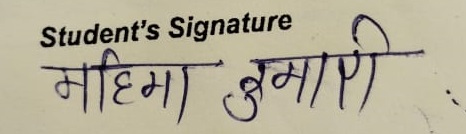 Student's Signature
महिमा कुमारी